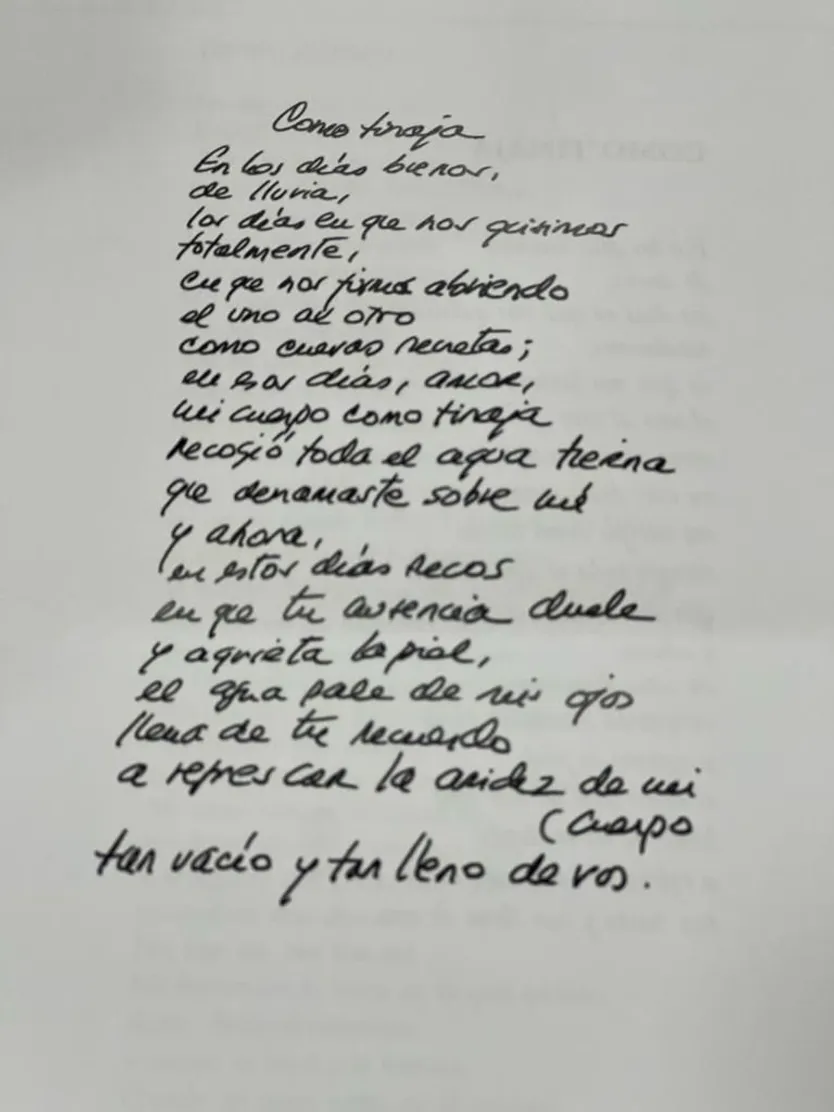 Como tinaja
En los días buenos,
de lluvia,
los días en que nos quisimos
totalmente,
en que nos fuimos abriendo
el uno al otro
como cuevas secretas;
en esos días, amor,
mi cuerpo como tinaja
recogió toda el agua tierna
que derramaste sobre mí
y ahora,
en estos días secos
en que tu ausencia duele
y agrieta la piel,
el agua sale de mis ojos
llena de tu recuerdo
a refrescar la aridez de mi
(cuerpo
tan vacío y tan lleno de vos.
COMO TINAJA